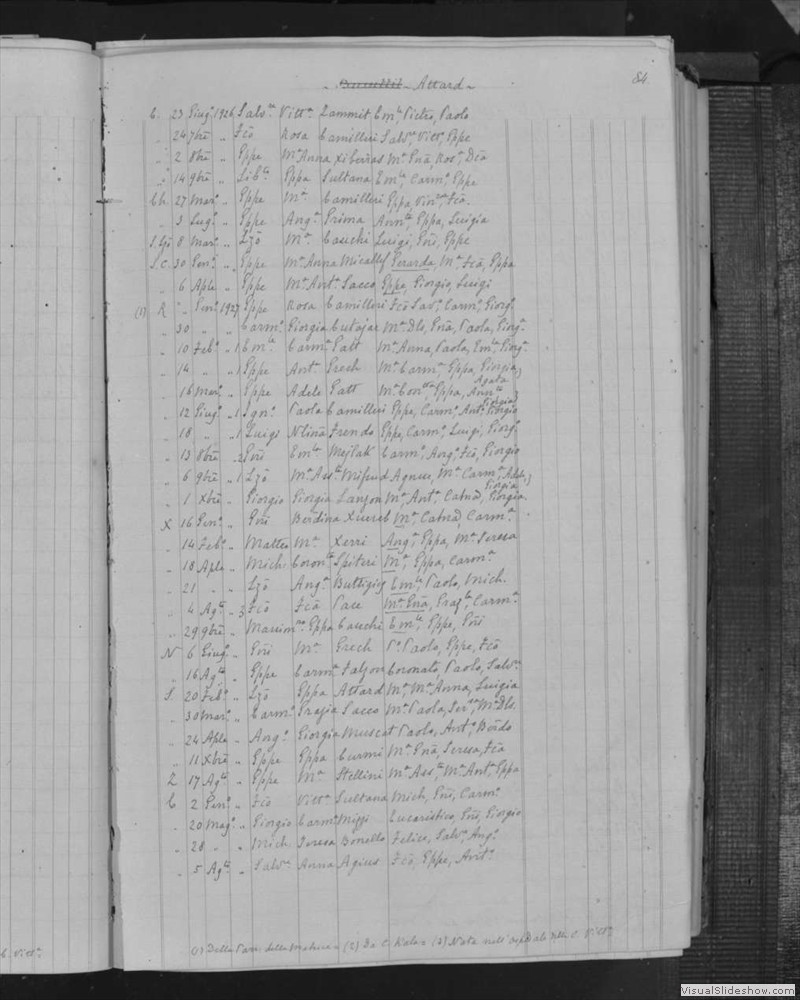 84
Attard
C. 23 Giugº 1926 Salvre Vittª Zammit Emle Pietro, Paolo
" 24 7bre " Fcō Rosa Camilleri Salvre, Vittª, Gppe
" 2 8bre " Gppe Mª Anna Xiberras Mª Gnā, Rosª, Dcā
" 14 9bre " Gppa Sultana Emle, Carmª, Gppe
Ch. 27 Marº " Gppe Mª Camilleri Gppa, Fcō
" 3 Lugº " Gppe Angª Prima Annta, Gppa, Luigia
S.Gi 8 Marº " Lzō Mª Caruchi Luigi, Gnī, Gppe
S.C. 30 Genº " Gppe Mª Anna Micallef Gerarda, Mª Fcā, Gppa
" 6 Aple " Gppe Mª Antª Sacco Gppe, Giorgio, Luigi
(1) R " Genº 1927 Gppe Rosa Camilleri Fcō Salvre, Carmª, Giorgº
" 30 " " Carmº Giorgia Cutajar Mª Dls, Gnā, Paola, Giorgª
" 10 Febº " 1 Emle Carmª Gatt Mª Anna, Paola, Emla, Giorgª
" 14 " " 1 Gppe Antª Grech Mª Carmª Gppa, Giorgia
" 16 Marº " Gppe Adele Gatt Mª Gppa, Annta Agata Giorgia
" 12 Giugº " 1 Ignº Paola Camilleri Gppe, Carmº, Antº Giorgio
" 18 " " 1 Luigi Nlina Frendo Gppe, Carmº, Luigi, Giorgº
" 13 8bre " 2 Gnī Emla Mejlak Carmº, Angº, Fcō, Giorgio
" 6 9bre " 1 Lzō Mª Assta Mifsud Agnese, Mª Carmª, Adele, Giorgia
" 1 Xbre " Giorgio Giorgia Lanzon Mª, Antª, Catnā, Giorgia
X 16 Genº " Gnī Berdina Xuereb Mª, Catnā, Carmª
" 14 Febº " Matteo Mª Xerri Angª, Gppa, Mª Teresa
" 18 Aple " Mich Coronta Spiteri Mª, Gppa, Carmª
" 21 " " Lzō Angª Buttigieg Emle, Paolo, Mich.
" 4 Agto " 3 Fcō Fcā Pace Mª Gnā, Grazta, Carmª
" 29 9bre " Massimno Gppa Cauchi Emle, Gppe, Gnī
N 6 Giugº " Gnī Mª Grech Pº Paolo, Gppe, Fcō
" 16 Agto " Gppe Carmª Falzon Coronato, Paolo, Salvre
S 20 Febº " Lzō Gppa Attard Mª, Mª Anna, Luigia
" 30 Marº " Carmº Grazia Sacco Mª Paola, Mª Dls
" 24 Aple " Angº Giorgia Muscat Paolo, Antº, Berdo
" 11 Xbre " Gppe Gppa Curmi Mª Gnā Teresa, Fcā
Z 17 Agto " Gppe Mª Stellini Mª Assta Mª Antª, Gppa
C 2 Genº " Fcō Vittª Sultana Mich, Gnī, Carmº
" 20 Magº " Giorgio Carmª Mizzi Eucaristico, Gnī, Giorgio
" 28 " " Mich Teresa Bonello Felice, Salvre, Angº
" 5 Agto " Salvre Anna Agius Fcō, Gppe, Antº
(1) Della Parr. della Matrice - (2) Da C. Kala - (3) Nato nell'ospedale della C. Vittª
C. Vittª
VisualSlideshow.com